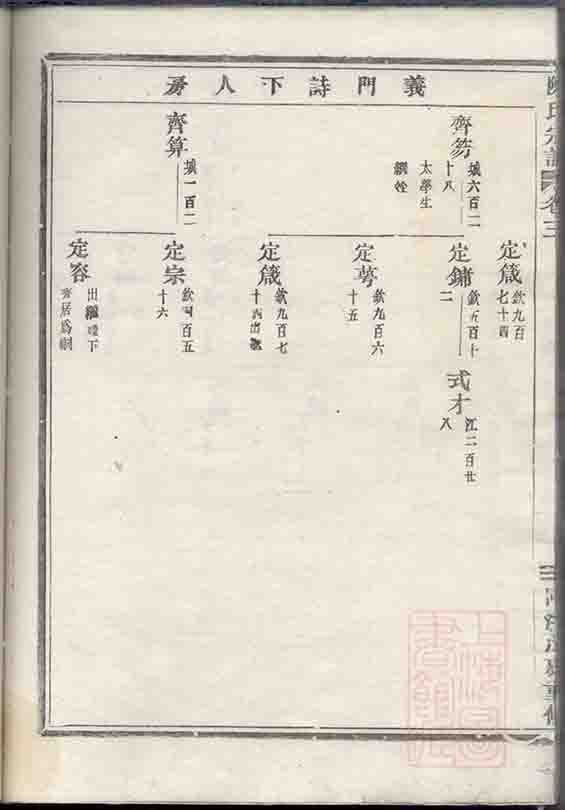 陳氏宗譜
卷三
義門詩下人房
齊笏
城六百二
十八
太學生
定箴
欽九百
七十四
定鏞
欽五百十
二
式才
江二百廿
八
定萼
欽九百六
十五
定箴
欽九百七
十四出繼
齊算
城一百二
定宗
欽四百五
十六
定容
出繼
下
齊居爲嗣
上海圖
書館藏